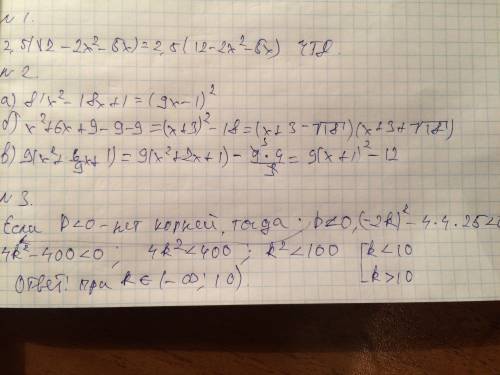 N 1.
2,5(12-2x²-6x)=2,5(12-2x²-6x) ЧТД.
N 2.
а) 81x²-18x+1=(9x-1)²
б) x²+6x+9-9-9=(x+3)²-18=(x+3-√18)(x+3+√18)
в) 9(x²+ x+1)=9(x²+2x+1)- =9(x+1)²-12
N 3.
Если D<0-нет корней, тогда: D<0, (-2k)²-4·4·25<0
4k²-400<0; 4k²<400; k²<100 [k<10
Ответ: при k∈(-∞; 10). k>10